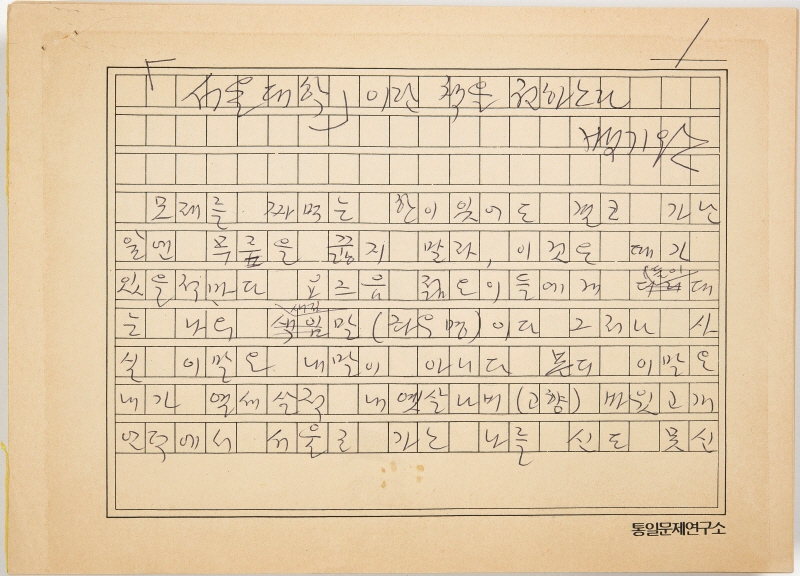 「서울대학」이란 책을 권하는다
백기완
모래를 짜먹는 한이 있어도 결코 가난
앞엔 무릎을 꿇지 말라, 이것은 때가
있을적마다 요즈음 젊은이들에게 들이대
는 나의 새김말(좌우명)이다 그러나 사
실 이말은 내말이 아니다 본디 이말은
내가 열세살적 내 옛살나비(고향) 바윗고개
언덕에서 서울로 가는 나를 신도 못신
통일문제연구소